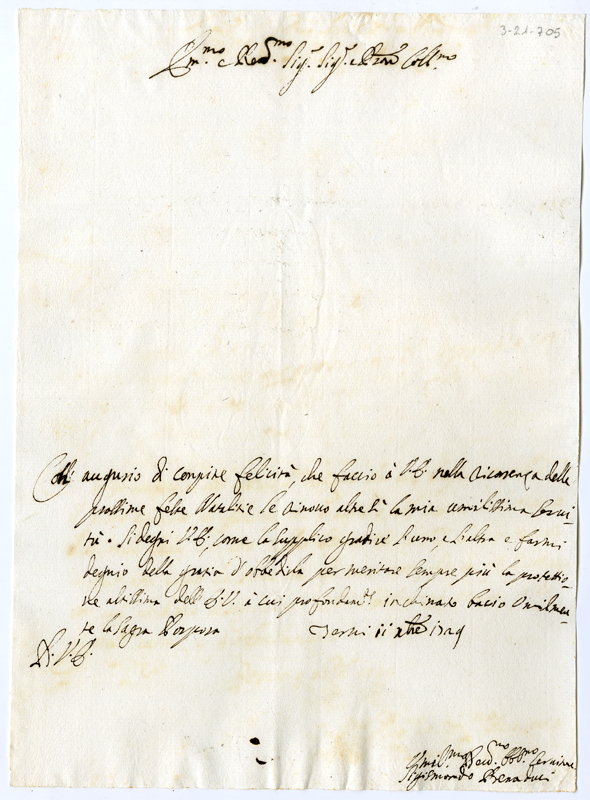 3-21-705
Em.mo e Red.mo Sig.r Sig.r e Pron Coll.mo
Coll' augurio di compite felicità, che faccio à V.E. nella ricorrenza delle
prossime feste Natalizie le rinovo altresì la mia umilissima servi-
tù. Si degni V.E., come la supplico gradire l'uno, e l'altra e farmi
degnio della gratia d'obbedirla per meritare sempre più la protettio-
ne altissima dell' E.V. à cui profondam.te inchinato bacio umilmen-
te la sagra Porpora Terni 11 xbre
D. V.E.
Umil.mo Dev.mo Obb.mo Servitore
Sigismondo Benaduci